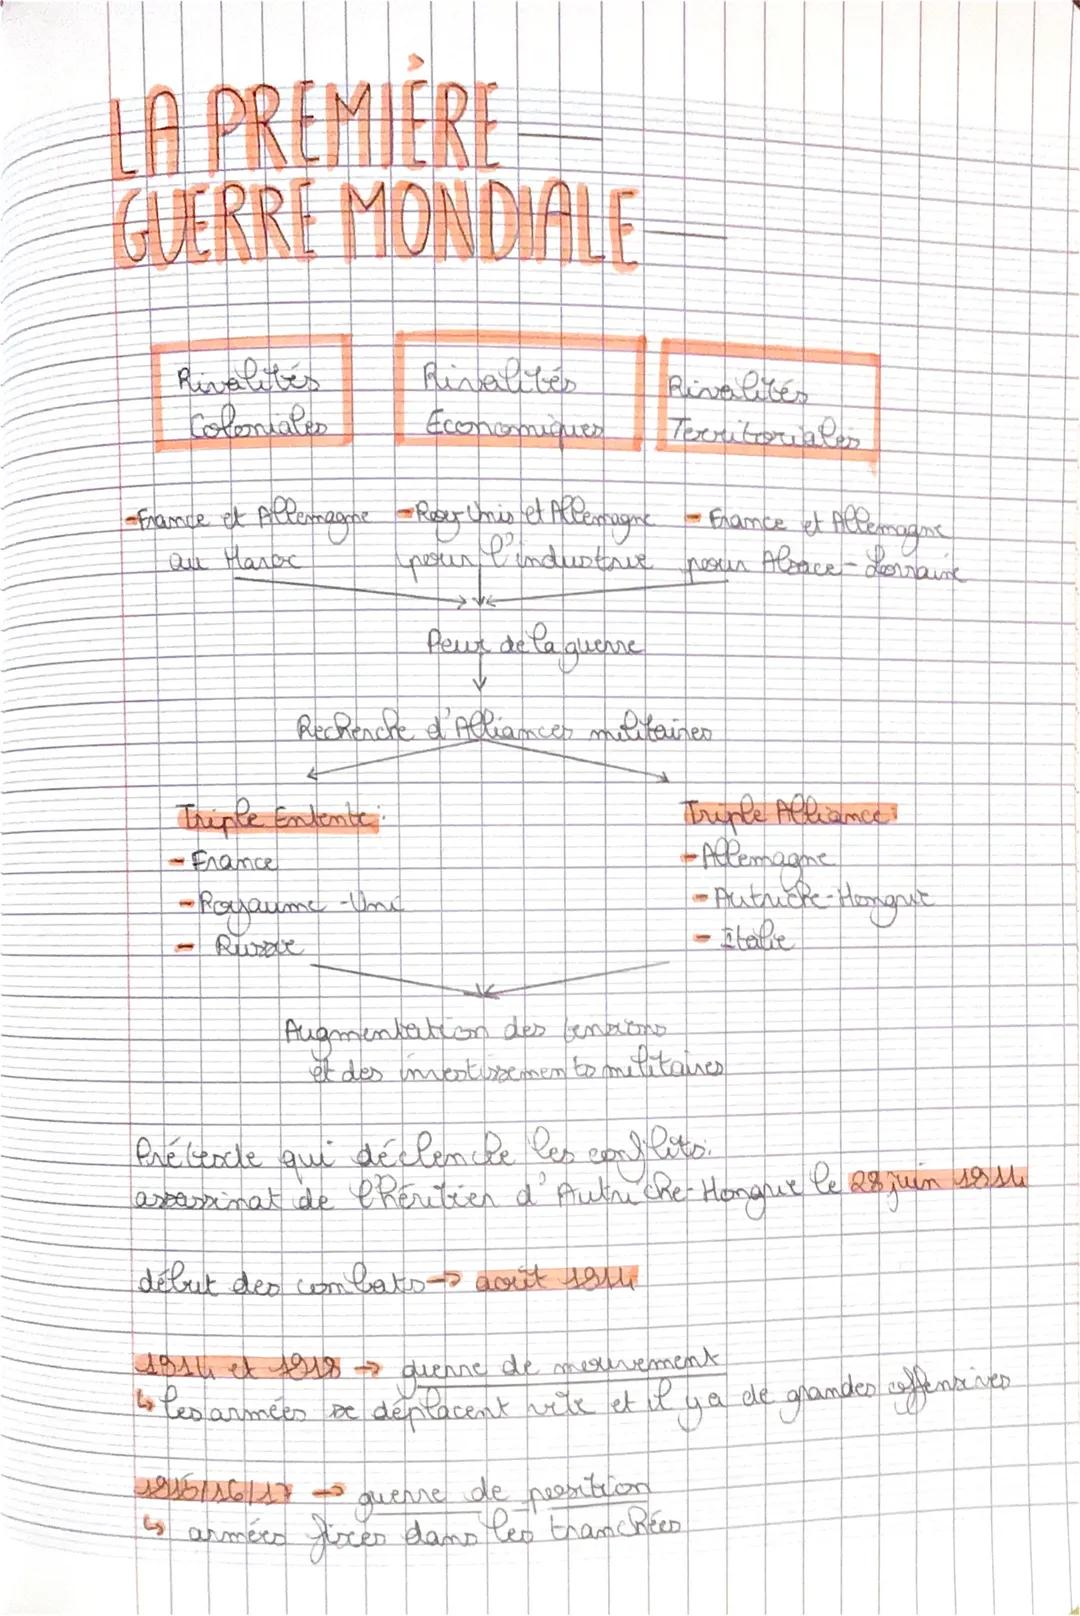 LA PREMIÈRE
GUERRE MONDIALE
Rivalités
Coloniales
Rivalités
Économiques
Rivalités
Territoriales
-France et Allemagne
au Maroc
-Roy Unis et Allemagne
pour l'industrie
- France et Allemagne
pour Alsace-Lorraine
Peur de la guerre
Recherche d'Alliances militaires
Triple Entente:
- France
- Royaume-Uni
- Russie
Triple Alliance:
- Allemagne
- Autriche-Hongrie
- Italie
Augmentation des tensions
et des investissements militaires
Prétexte qui déclenche les conflits:
assassinat de l'héritier d'Autriche-Hongrie le 28 juin 1914
début des combats → août 1914
1914 et 1918 → guerre de mouvement
↳ les armées se déplacent vite et il y a de grandes offensives
1915/16/17 → guerre de position
↳ armées fixes dans les tranchées